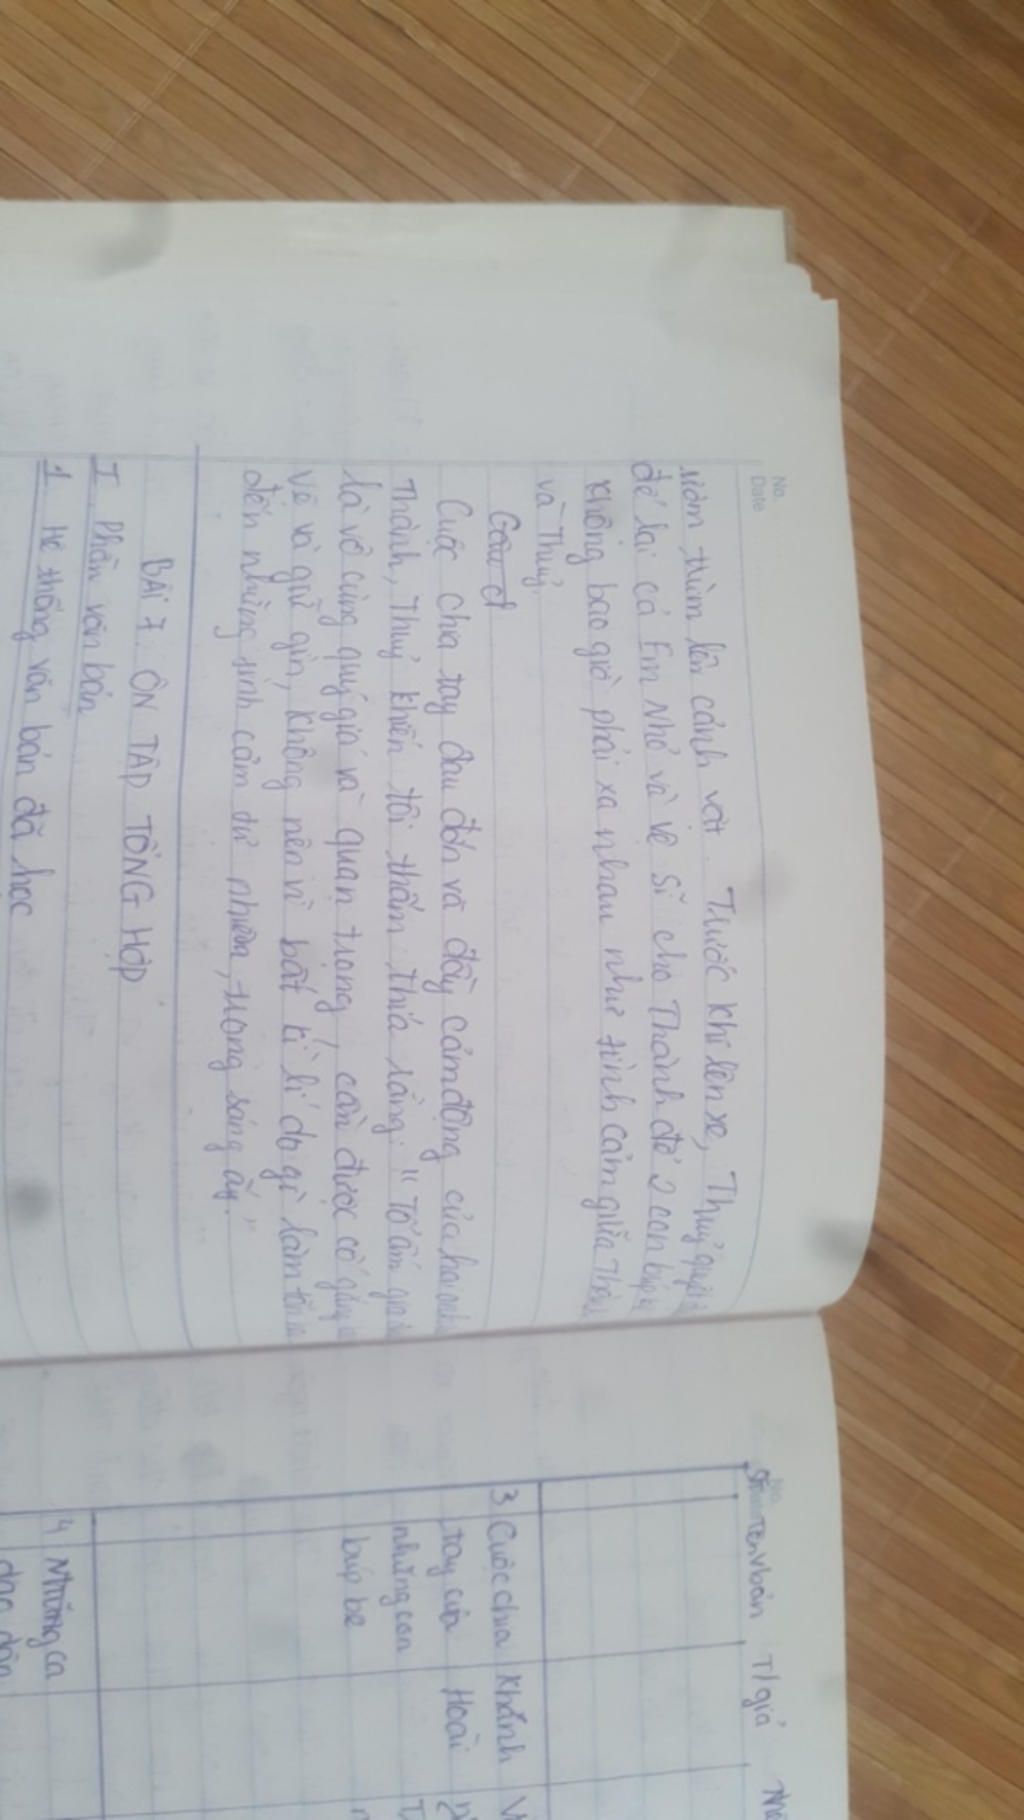 No.
Date
trùm lên cảnh vật. Trước khi lên xe, Thuỷ
để lại cả Em Nhỏ và Vệ Sĩ cho Thành để 2 con búp
không bao giờ phải xa nhau như tình cảm giữa
và Thuỷ.
Câu d
Cuộc chia tay đau đớn và đầy cảm động của hai
Thành, Thuỷ khiến tôi thấm thía rằng: "Tổ ấm gia
là vô cùng quý giá và quan trọng, cần được cố gắng
vệ và giữ gìn, không nên vì bất kì lí do gì làm tổn
đến những tình cảm tự nhiên, trong sáng ấy."
BÀI 7: ÔN TẬP TỔNG HỢP
I Phần văn bản
1 Hệ thống văn bản đã học
No.
Tên vbản T/giả
3 Cuộc chia Khánh
tay của Hoài
những con
búp bê
4 Những ca
dao dân